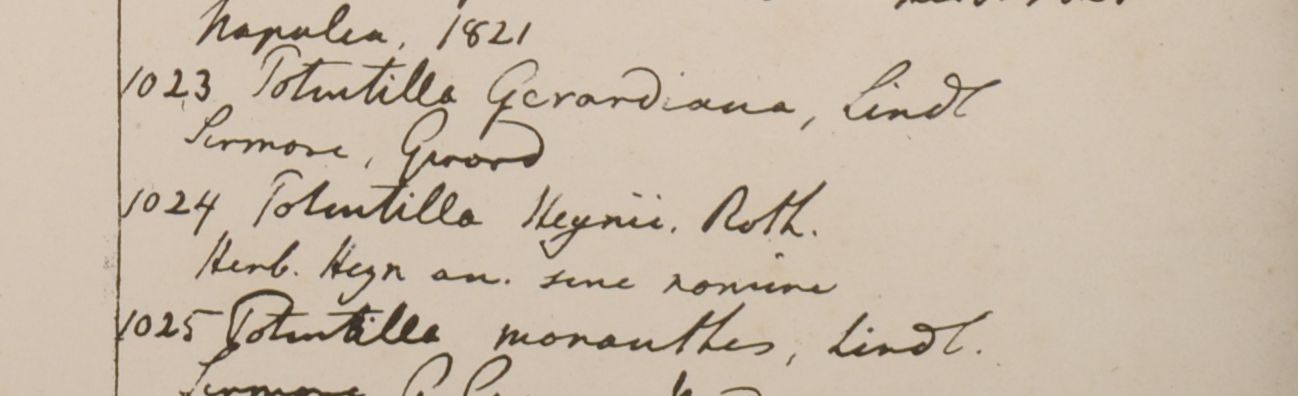 Napalea, 1821
1023 Potentilla Gerardiana, Lindl
Sirmore, Gerard
1024 Potentilla Heynii. Roth.
Herb. Heyn an. sine nomine
1025 Potentilla monanthes, Lindl.
Sirmore